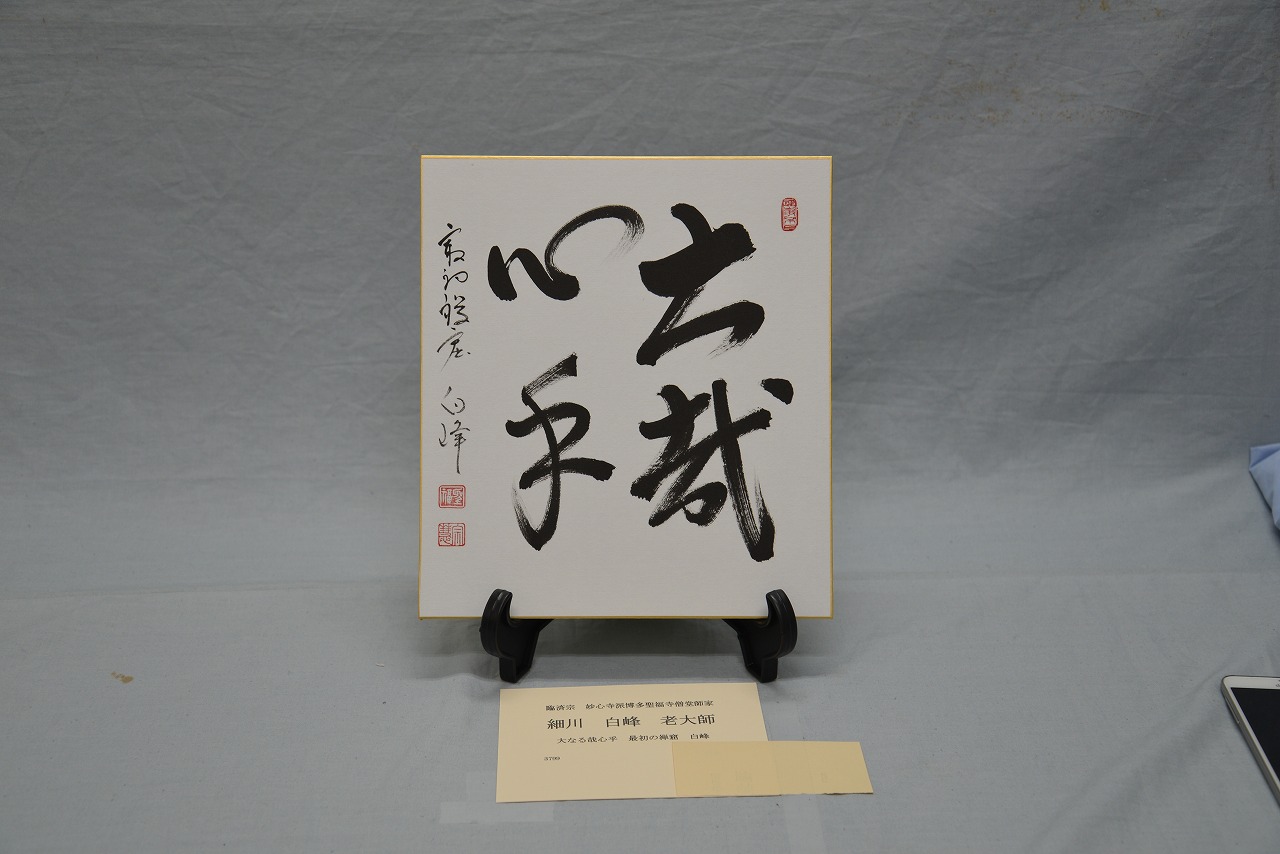 大哉
心乎
最初禅窟 白峰
臨済宗 妙心寺派博多聖福寺僧堂師家
細川 白峰 老大師
大なる哉心乎 最初の禅窟 白峰